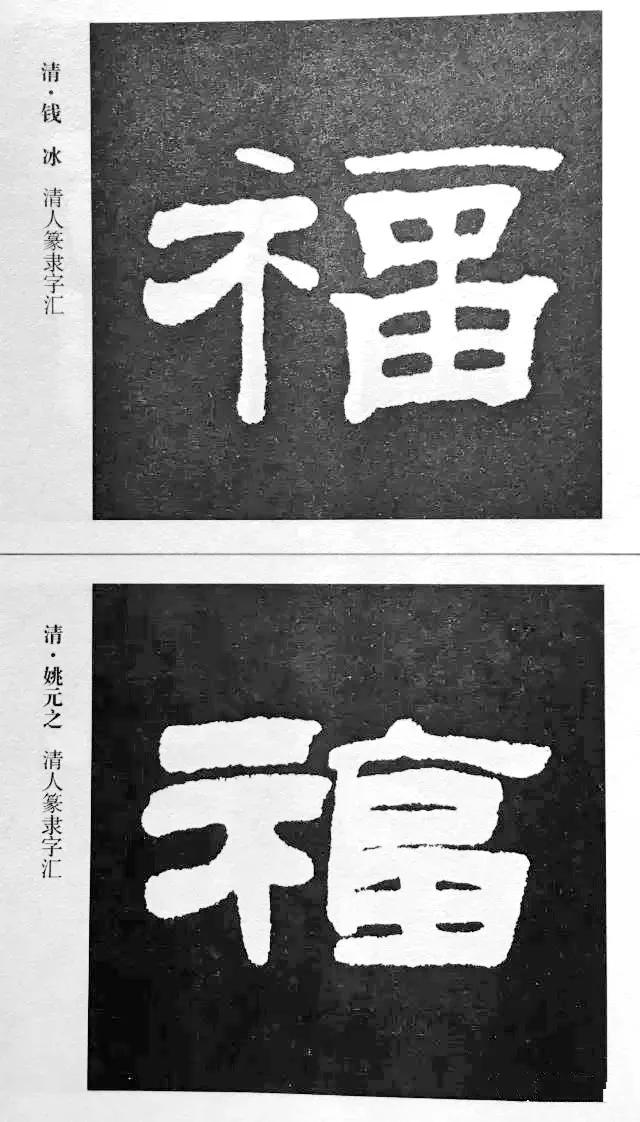 清·钱冰 清人篆隶字汇
福
清·姚元之 清人篆隶字汇
福